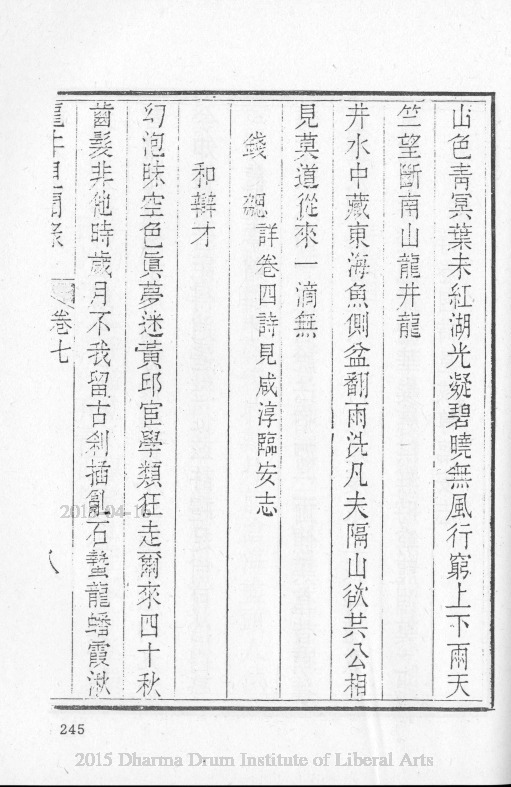 山色靑冥葉未紅湖光凝碧曉無風行窮上下兩天
竺望斷南山龍井龍
井水中藏東海魚側盆翻雨洗凡夫隔山欲共公相
見莫道從來一滴無
錢勰 詳卷四詩見咸淳臨安志
和辯才
幻泡昧空色眞夢迷黃邱宦學類狂走爾來四十秋
齒髮非他時歲月不我留古刹插亂石蟄龍蟠霞湫
龍井見聞錄 卷七 八
245
2015-04-1
2015 Dharma Drum Institute of Liberal Arts